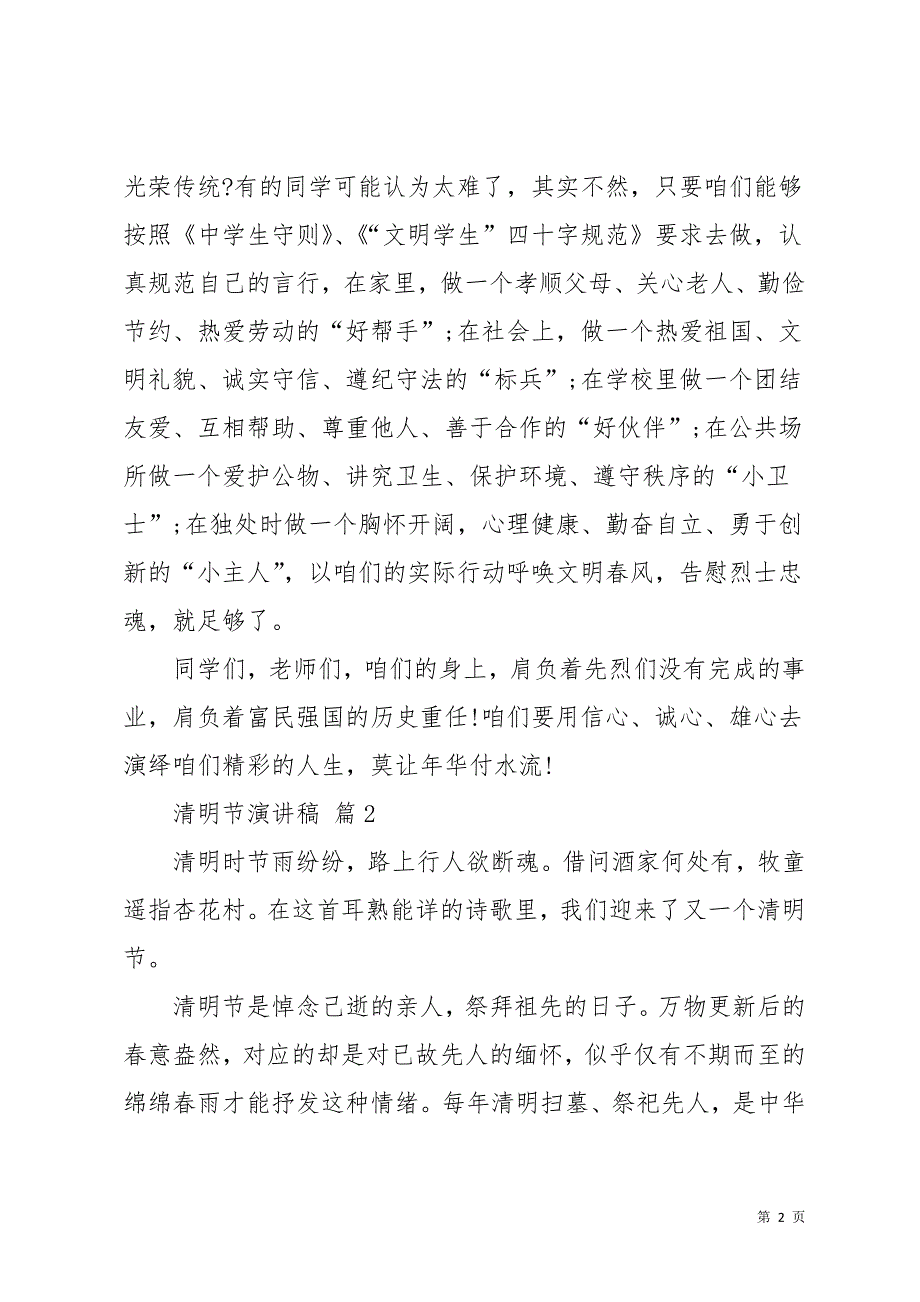 光荣传统?有的同学可能认为太难了，其实不然，只要咱们能够
按照《中学生守则》、《“文明学生”四十字规范》要求去做，认
真规范自己的言行，在家里，做一个孝顺父母、关心老人、勤俭
节约、热爱劳动的“好帮手”;在社会上，做一个热爱祖国、文
明礼貌、诚实守信、遵纪守法的“标兵”;在学校里做一个团结
友爱、互相帮助、尊重他人、善于合作的“好伙伴”;在公共场
所做一个爱护公物、讲究卫生、保护环境、遵守秩序的“小卫
士”;在独处时做一个胸怀开阔，心理健康、勤奋自立、勇于创
新的“小主人”，以咱们的实际行动呼唤文明春风，告慰烈士忠
魂，就足够了。
同学们，老师们，咱们的身上，肩负着先烈们没有完成的事
业，肩负着富民强国的历史重任!咱们要用信心、诚心、雄心去
演绎咱们精彩的人生，莫让年华付水流!
清明节演讲稿 篇2
清明时节雨纷纷，路上行人欲断魂。借问酒家何处有，牧童
遥指杏花村。在这首耳熟能详的诗歌里，我们迎来了又一个清明
节。
清明节是悼念已逝的亲人，祭拜祖先的日子。万物更新后的
春意盎然，对应的却是对已故先人的缅怀，似乎仅有不期而至的
绵绵春雨才能抒发这种情绪。每年清明扫墓、祭祀先人，是中华
第 2 页